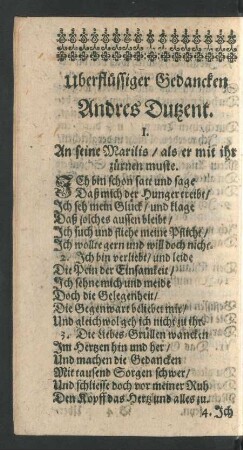 Uberflüssiger Gedancken
Andres Dutzent.
1.
An seine Marilis / als er mit ihr
zürnen muste.
Jch bin schon satt und sage
Daß mich der Hunger treibt/
Jch seh mein Glück/ und klage
Daß solches aussen bleibt/
Jch such und fliehe meine Pflicht/
Jch wollte gern und will doch nicht.
2. Jch bin verliebt/ und leide
Die Pein der Einsamkeit/
Jch sehne mich und meide
Doch die Gelegenheit/
Die Gegenwart beliebet mir/
Und gleichwol geh ich nicht zu ihr.
3. Die Liebes-Grüllen wancken
Jm Hertzen hin und her/
Und machen die Gedancken
Mit tausend Sorgen schwer/
Und schliesse doch vor meiner Ruh
Den Kopff das Hertz und alles zu.
4. Jch